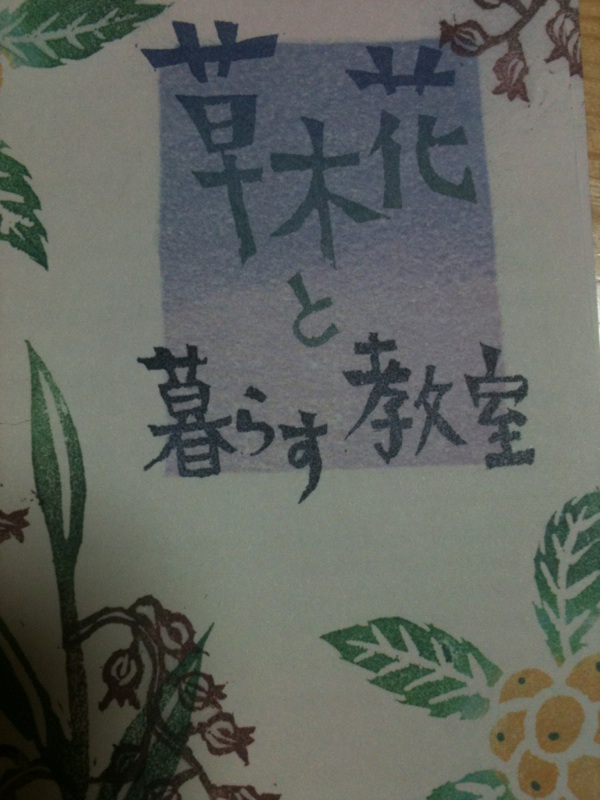 草木花
と
暮らす教室